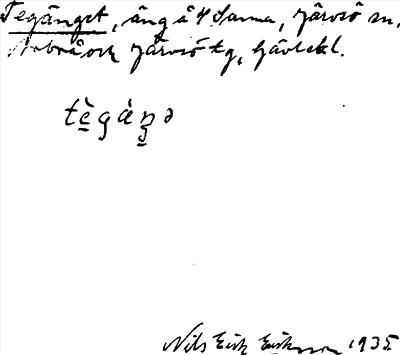 Tegänget, äng å 4 Sanna, Järvsö sn,
Arbrå och Järvsö tg, Gävlebl.
tègàŋə
Nils Eick Eriksson 1935